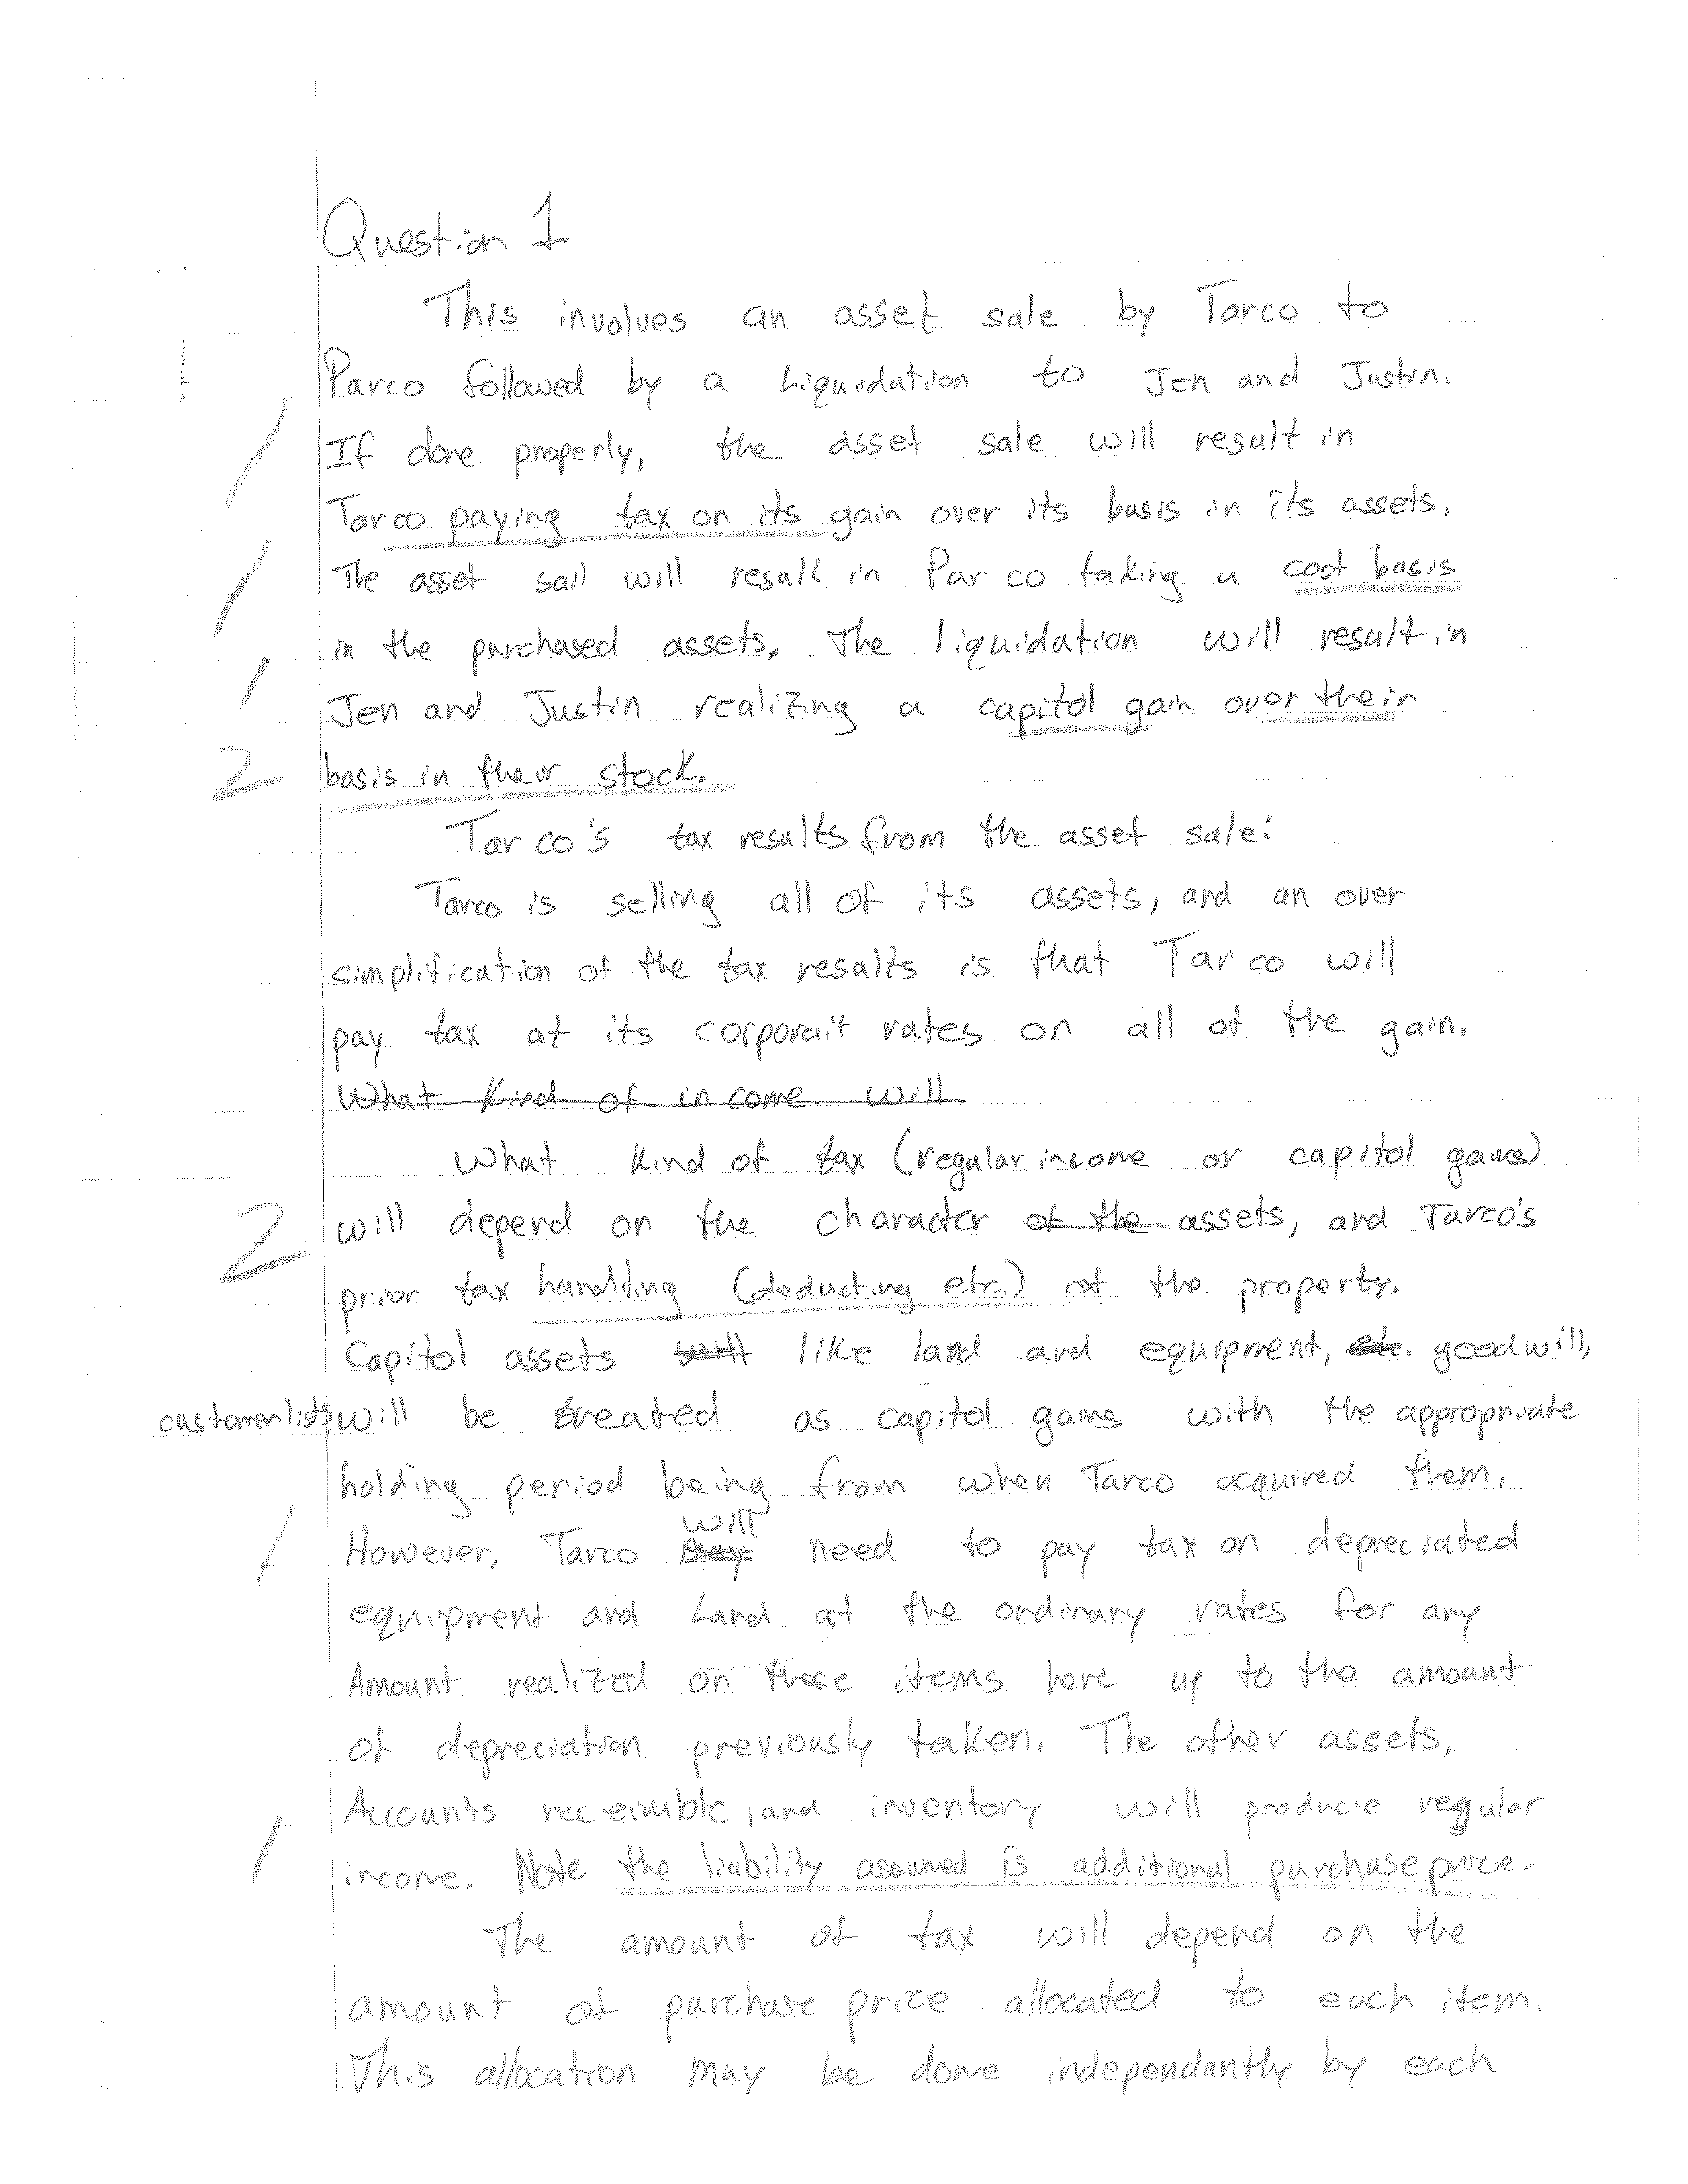 Question 1
This involves an asset sale by Tarco to
Parco followed by a Liquidation to Jen and Justin.
/ If done properly, the asset sale will result in
Tarco paying tax on its gain over its basis in its assets.
/ The asset sail will result in Parco taking a cost basis
in the purchased assets. The liquidation will result in
/ Jen and Justin realizing a capitol gain over their
2 basis in their stock.
Tarco's tax results from the asset sale:
Tarco is selling all of its assets, and an over
simplification of the tax results is that Tarco will
pay tax at its corporait rates on all of the gain.
What kind of income will
What kind of tax (regular income or capitol gains)
2 will depend on the character of the assets, and Tarco's
prior tax handling (deducting etc.) of the property.
Capitol assets will like land and equipment, etc. goodwill,
customer lists, will be treated as capitol gains with the appropriate
holding period being from when Tarco acquired them.
will
/ However, Tarco may need to pay tax on depreciated
equipment and Land at the ordinary rates for any
Amount realized on these items here up to the amount
of depreciation previously taken. The other assets,
Accounts receivable, and inventory will produce regular
/ income. Note the liability assumed is additional purchase price.
The amount of tax will depend on the
amount of purchase price allocated to each item.
This allocation may be done independantly by each